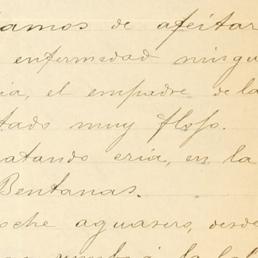 íamos de afeitar
enfermedad ningu
ia, el empadre de la
tado muy flojo.
atando cria, en la
Bentanas.
oche aguasero, desde